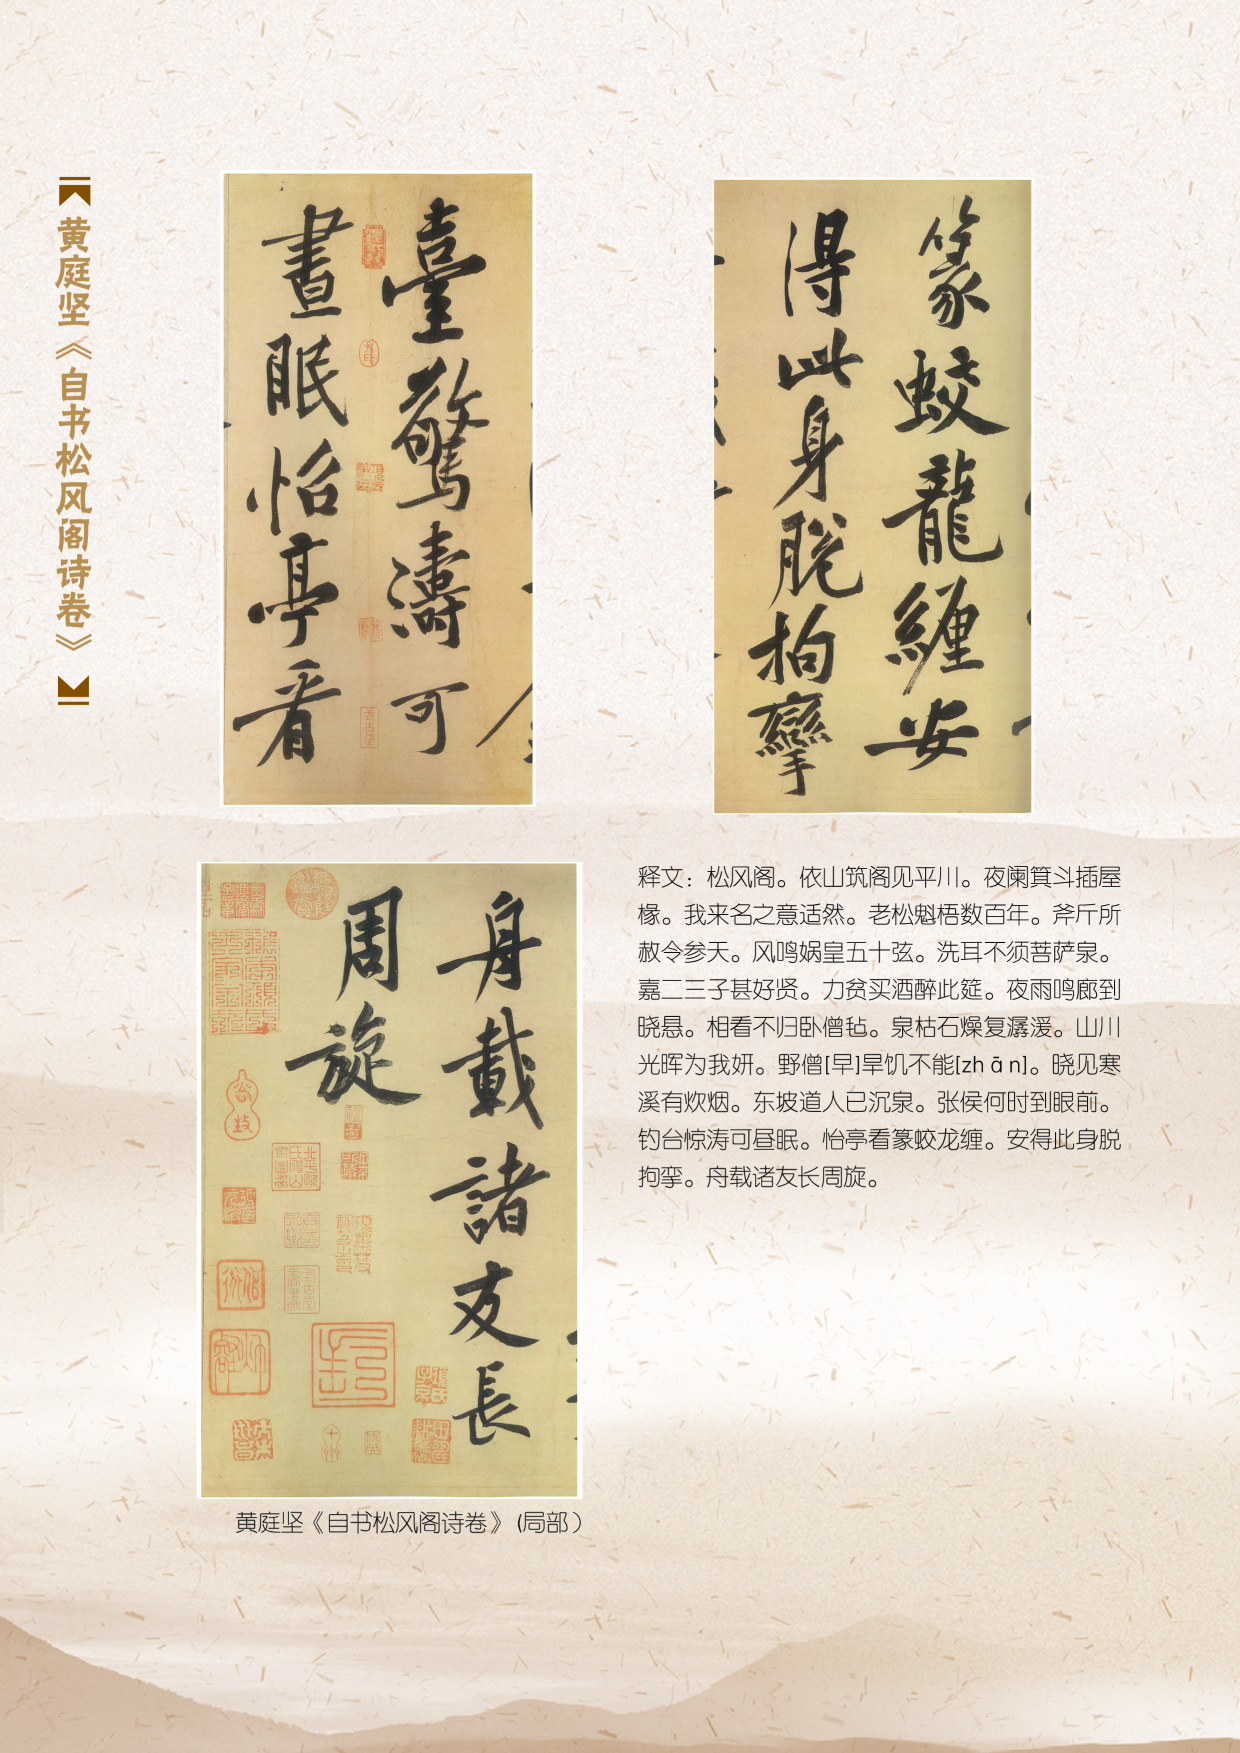 黄庭坚《自书松风阁诗卷》
臺驚濤可
晝眠怡亭看
篆蛟龍纏安
得此身脱拘攣
舟載諸友長
周旋
释文：松风阁。依山筑阁见平川。夜阑箕斗插屋
椽。我来名之意适然。老松魁梧数百年。斧斤所
赦令参天。风鸣娲皇五十弦。洗耳不须菩萨泉。
嘉二三子甚好贤。力贫买酒醉此筵。夜雨鸣廊到
晓悬。相看不归卧僧毡。泉枯石燥复潺湲。山川
光晖为我妍。野僧[早]旱饥不能[zhān]。晓见寒
溪有炊烟。东坡道人已沉泉。张侯何时到眼前。
钓台惊涛可昼眠。怡亭看篆蛟龙缠。安得此身脱
拘挛。舟载诸友长周旋。
黄庭坚《自书松风阁诗卷》(局部）